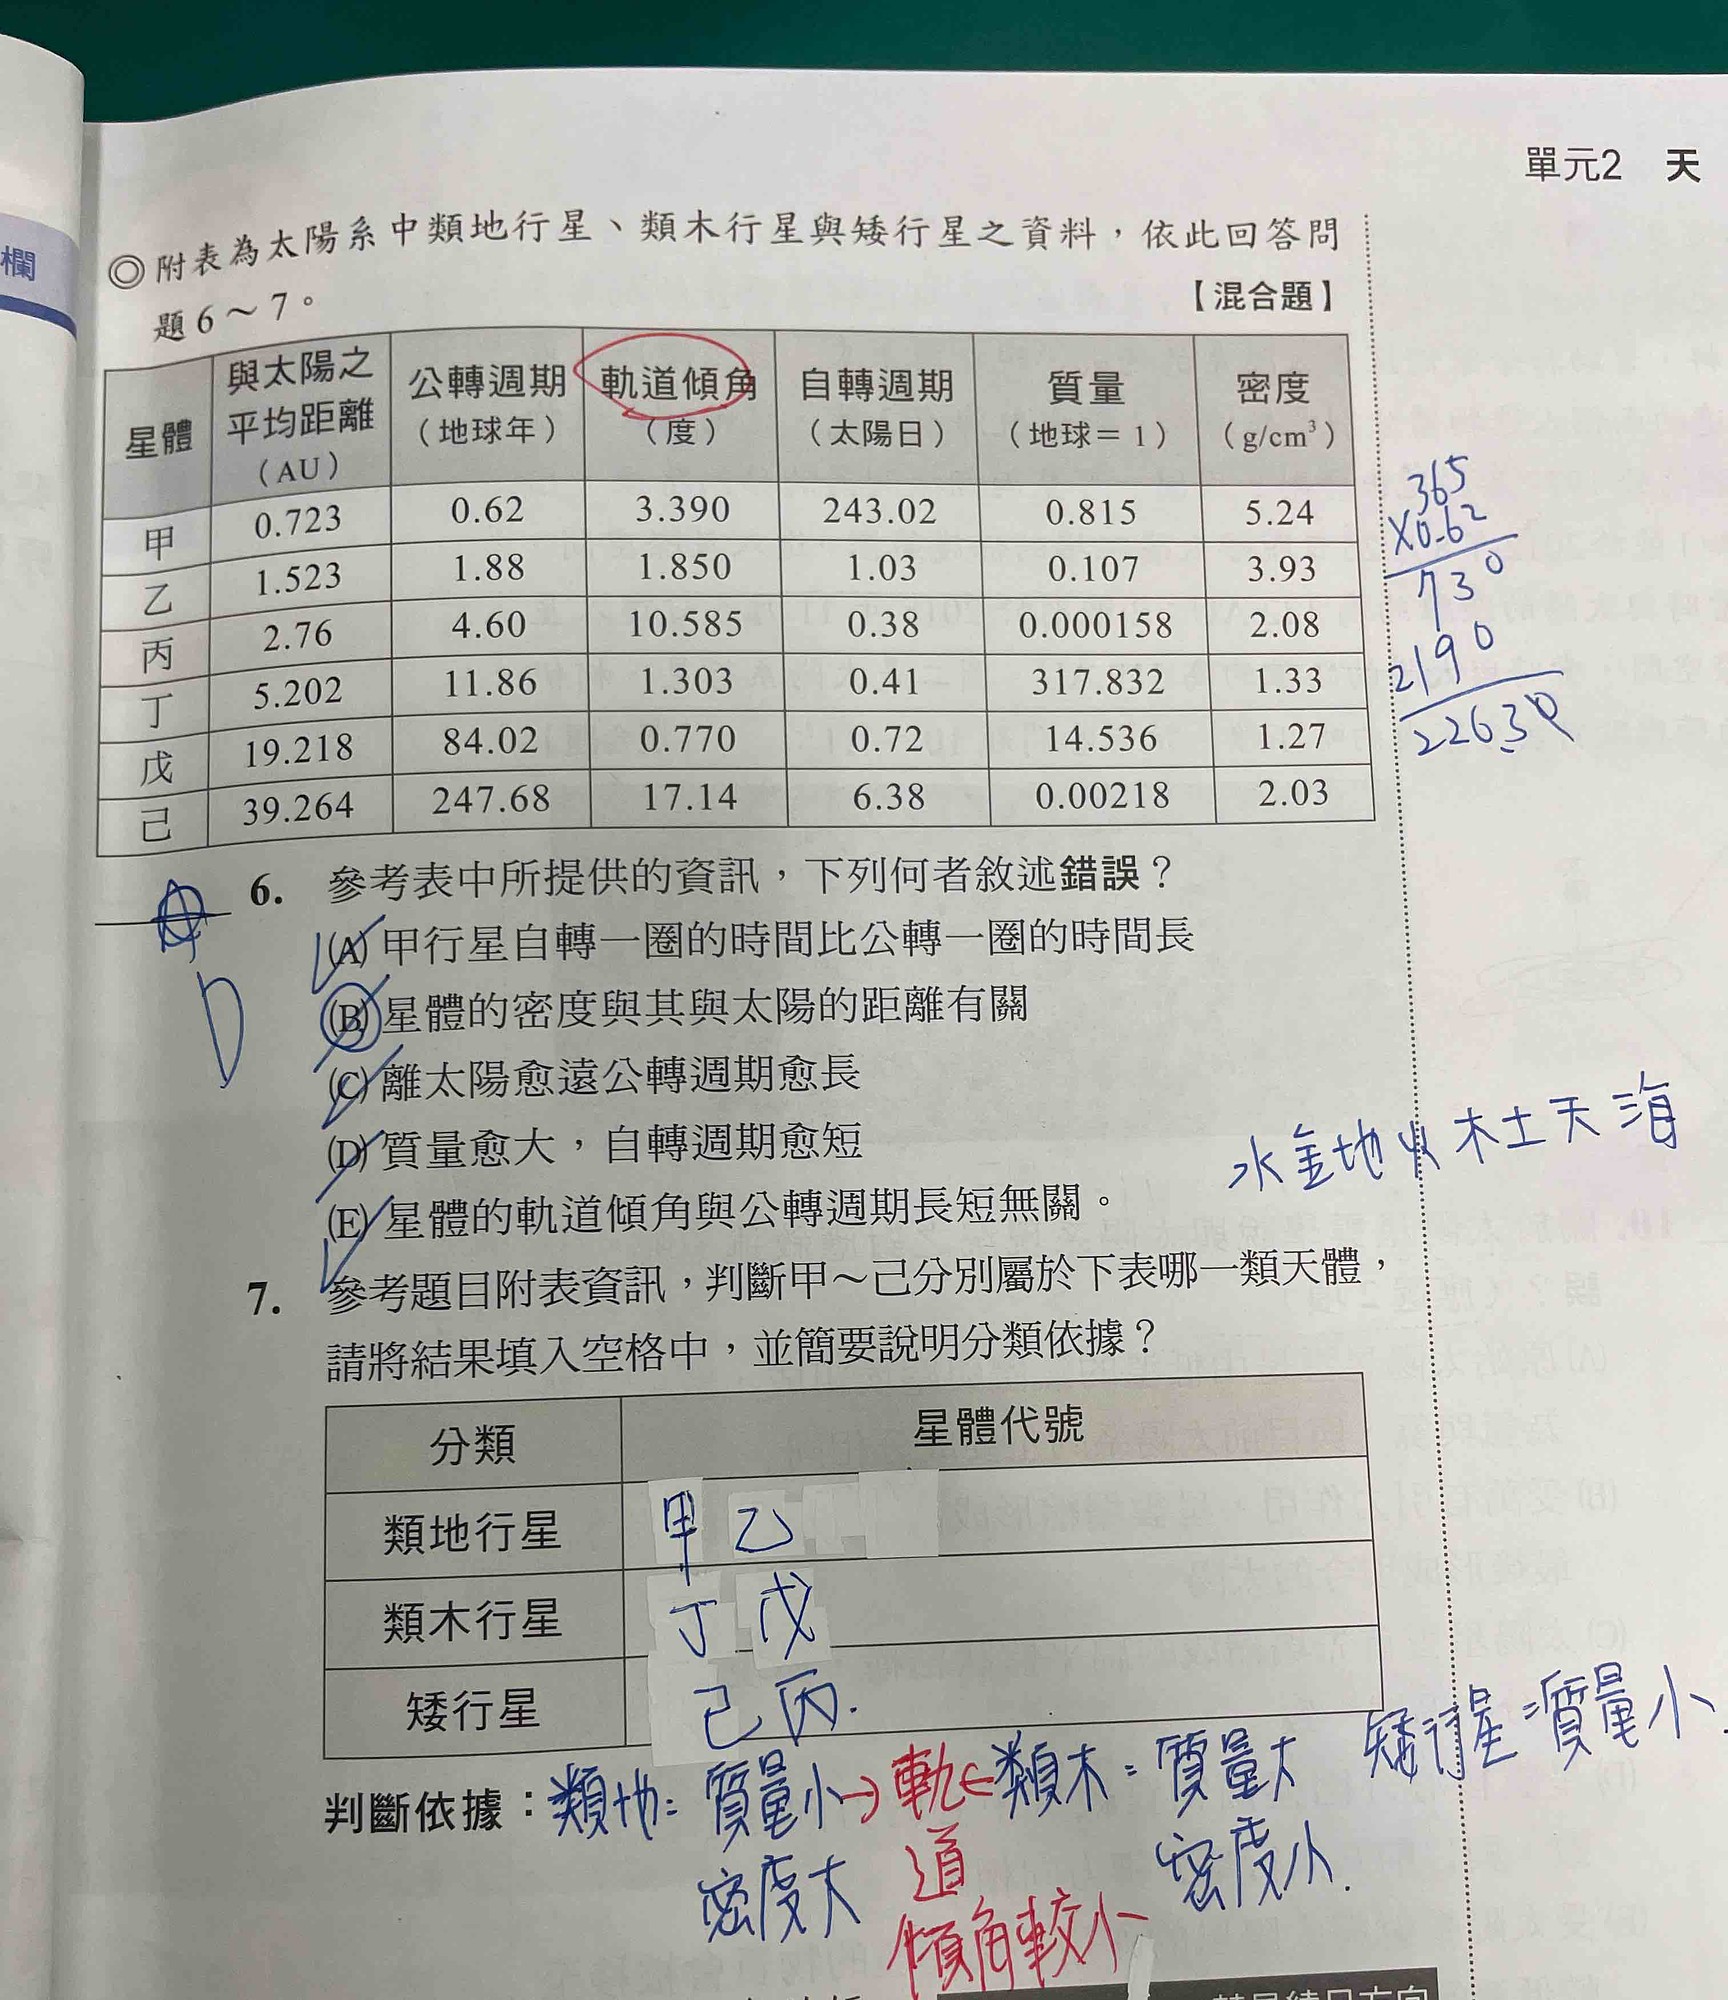 單元2 天
欄
◎附表為太陽系中類地行星、類木行星與矮行星之資料，依此回答問
題6～7。
【混合題】
星體 與太陽之平均距離（AU） 公轉週期（地球年） 軌道傾角（度） 自轉週期（太陽日） 質量（地球＝1） 密度（g/cm³）
甲 0.723 0.62 3.390 243.02 0.815 5.24
乙 1.523 1.88 1.850 1.03 0.107 3.93
丙 2.76 4.60 10.585 0.38 0.000158 2.08
丁 5.202 11.86 1.303 0.41 317.832 1.33
戊 19.218 84.02 0.770 0.72 14.536 1.27
己 39.264 247.68 17.14 6.38 0.00218 2.03
365
×0.62
730
2190
2263
6. 參考表中所提供的資訊，下列何者敘述錯誤？
(A)甲行星自轉一圈的時間比公轉一圈的時間長
(B)星體的密度與其與太陽的距離有關
D
(C)離太陽愈遠公轉週期愈長
(D)質量愈大，自轉週期愈短
水金地火木土天海
(E)星體的軌道傾角與公轉週期長短無關。
7. 參考題目附表資訊，判斷甲～己分別屬於下表哪一類天體，
請將結果填入空格中，並簡要說明分類依據？
分類 星體代號
類地行星 甲乙
類木行星 丁戊
矮行星 己丙.
判斷依據：類地：質量小→軌←類木：質量大 矮行星：質量小.
密度大 道 密度小.
傾角較小